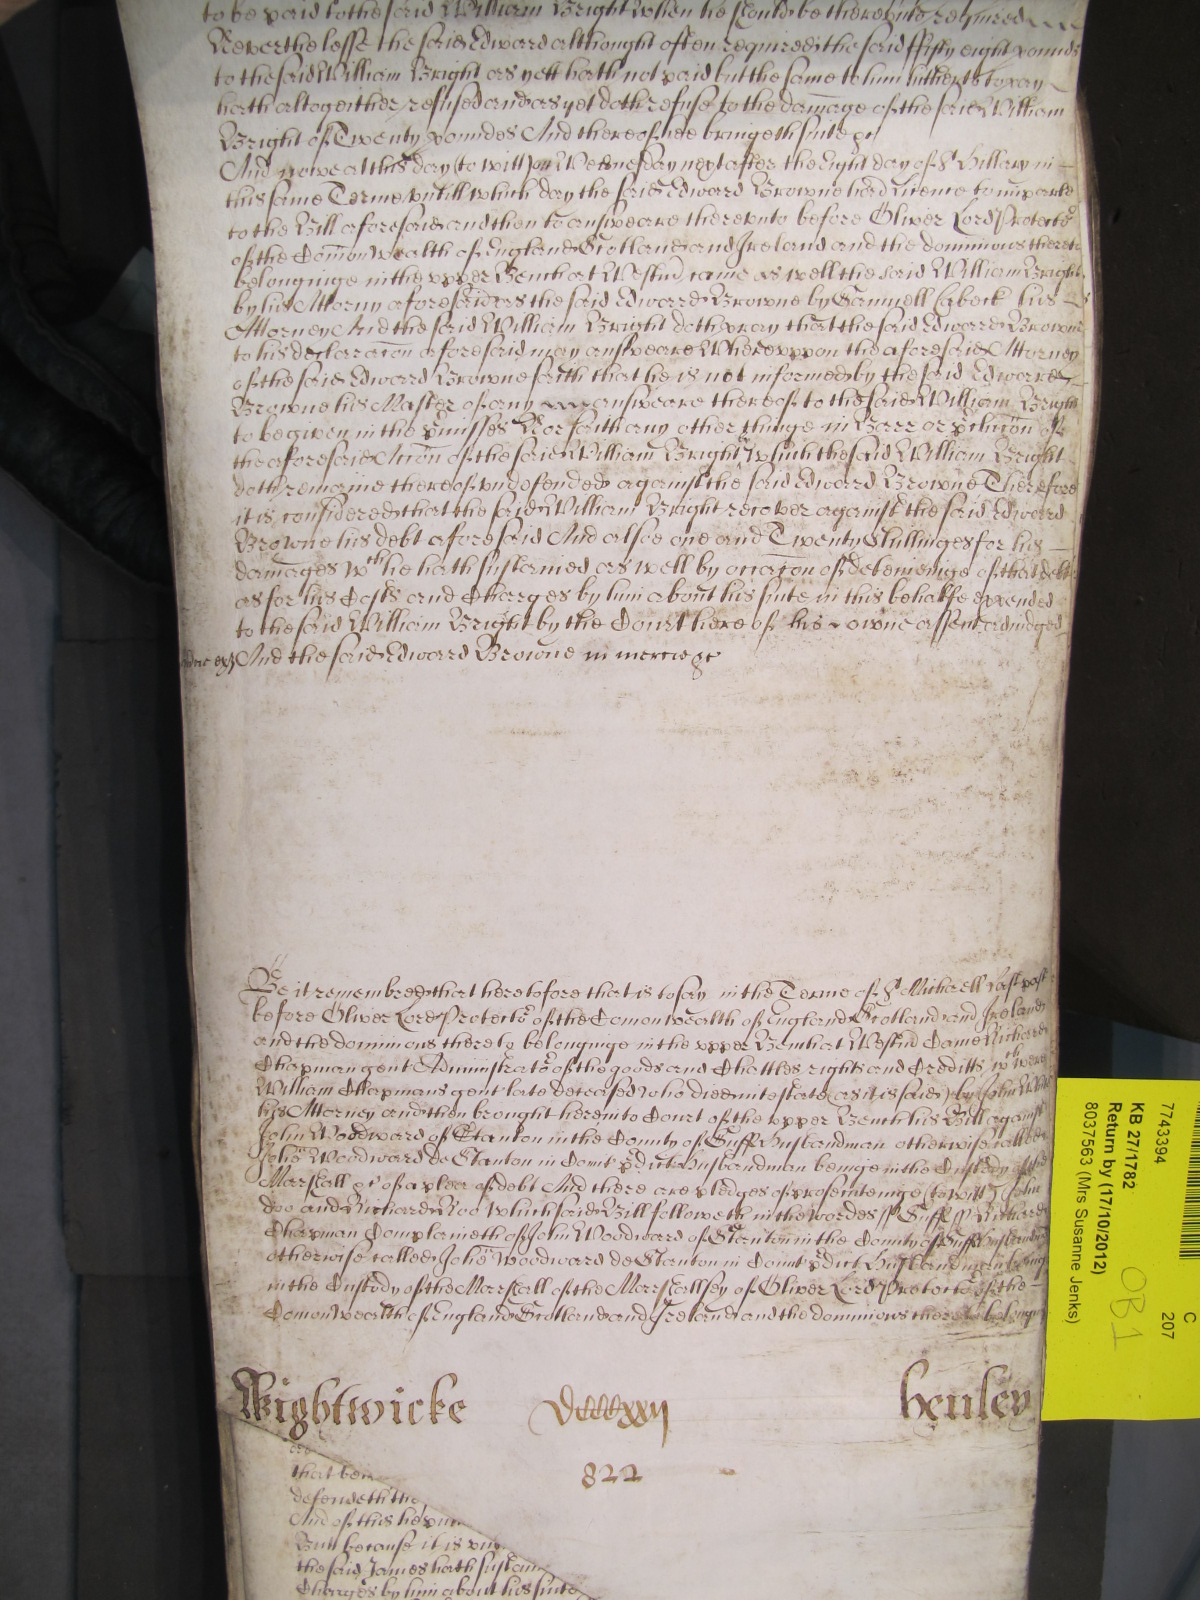 to be paid to the said William Bright when he should be thereunto required
Neverthelesse the said Edward althought often required the said ffifty eight pounds
to the said William Bright as yett hath not paid but the same to him hitherto to pay
hath altogeither refused and as yet doth refuse to the damage of the said William
Bright of Twenty poundes And thereof hee bringeth suite &c
And nowe at this day (to witt) on Wednesday next after the Eight day of St Hillary in
this same Terme untill which day the said Edward Browne had licence to imparle
to the Bill aforesaid and then to answeare thereunto before Oliver Lord Protector
of the Comon Wealth of England Scotland and Ireland and the dominions thereto
belonginge in the upper Bench at Westmr came as well the said William Bright
by his Attorny aforesaid as the said Edward Browne by Samuell Cabock his
Attorney And the said William Bright doth pray that the said Edward Browne
to his declaracon aforesaid may answeare Whereuppon the aforesaid Attorney
of the said Edward Browne saith that he is not informed by the said Edward
Browne his Master of any answeare thereof to the said William Bright
to be given in the pmisses Nor saith any other thinge in Barr or pclucon of
the aforesaid Accon of the said William Bright by which the said William Bright
doth remaine thereof undefended against the said Edward Browne Therefore
it is considered that the said William Bright recover against the said Edward
Browne his debt aforesaid And alsoe one and Twenty Shillinges for his
damages wch he hath sustained as well by occacon of deteineinge of that debt
as for his Costs and Charges by him about his suite in this behalfe expended
to the said William Bright by the Court here of his owne assent adiudged
And the said Edward Browne in mercie &c
Be it remembred that heretofore that is to say in the Terme of St Michaell Last past
before Oliver Lord Protector of the Comon Wealth of England Scotland and Ireland
and the dominions thereto belonginge in the upper Bench at Westmr Came Richard
Chapman gent Administrator of the goods and Chattles rights and Creditts wch were
William Chapmans gent late deceased who died intestate (as it is said) by John
his Attorney and then brought here into Court of the upper Bench his Bill against
John Woodward of Stanton in the County of Suff Husbandman otherwise called
Johes Woodward de Stanton in Comit pdict Husbandman beinge in the Custody of the
Marshall &c of a plea of debt And there are pledges of prosecuteinge (to witt) John
Doo and Richard Roo Which said Bill followeth in theis wordes ss Suff ss Richard
Chapman Complaineth of John Woodward of Stanton in the County of Suff Husbandman
otherwise called Johes Woodward de Stanton in Comit pdict Husbandman being
in the Custody of the Marshall of the Marshallsey of Oliver Lord Protector of the
Comon Wealth of England Scotland and Ireland and the dominions thereto belonging
Wightwicke Dccccxxij Henley
822
that bein
defendeth the
And of this he putt
Butt because it is
the said James hath sustain
Charges by him about his suite
C
207
7743394
KB 27/1782
Return by (17/10/2012)
8037563 (Mrs Susanne Jenks)
OB 1